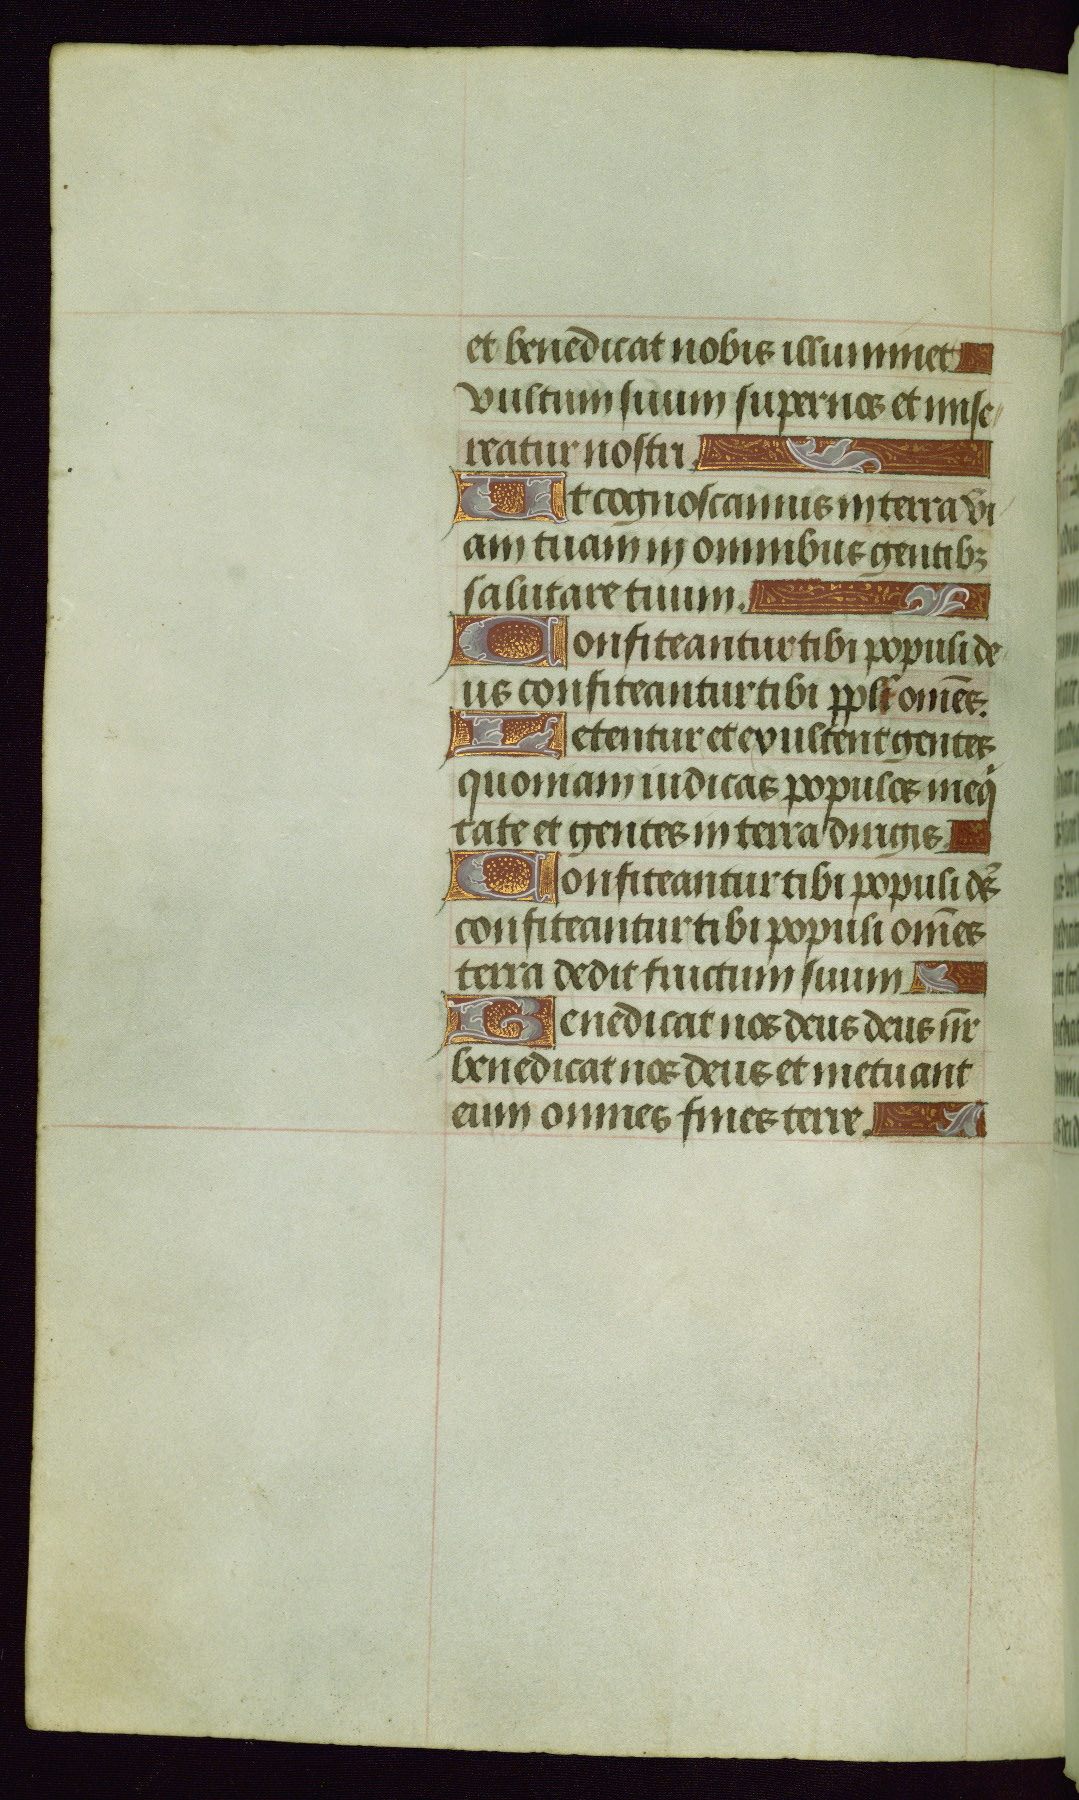 et benedicat nobis illuminet
vultum suum super nos et mise
reatur nostri.
Ut cognoscamus in terra vi
am tuam in omnibus gentibꝫ
salutare tuum.
Confiteantur tibi populi de
us confiteantur tibi ppl'i om̅es.
Letentur et exultent gentes
quoniam iudicas populos in eq̇
tate et gentes in terra dirigis.
Confiteantur tibi populi de̅s
confiteantur tibi populi om̅es
terra dedit fructum suum
Benedicat nos deus deus nr̅
benedicat nos deus et metuant
eum omnes fines terre.